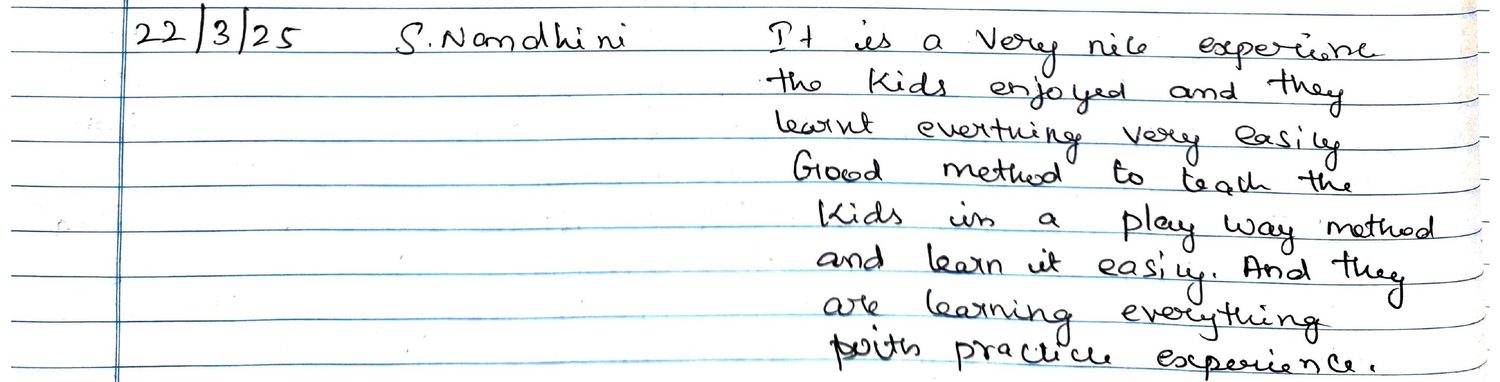 22/3/25 S. Nandhini It is a very nice experience
the kids enjoyed and they
learnt everthing very easily
Good method to teach the
kids in a play way method
and learn it easily. And they
are learning everything
with practice experience.